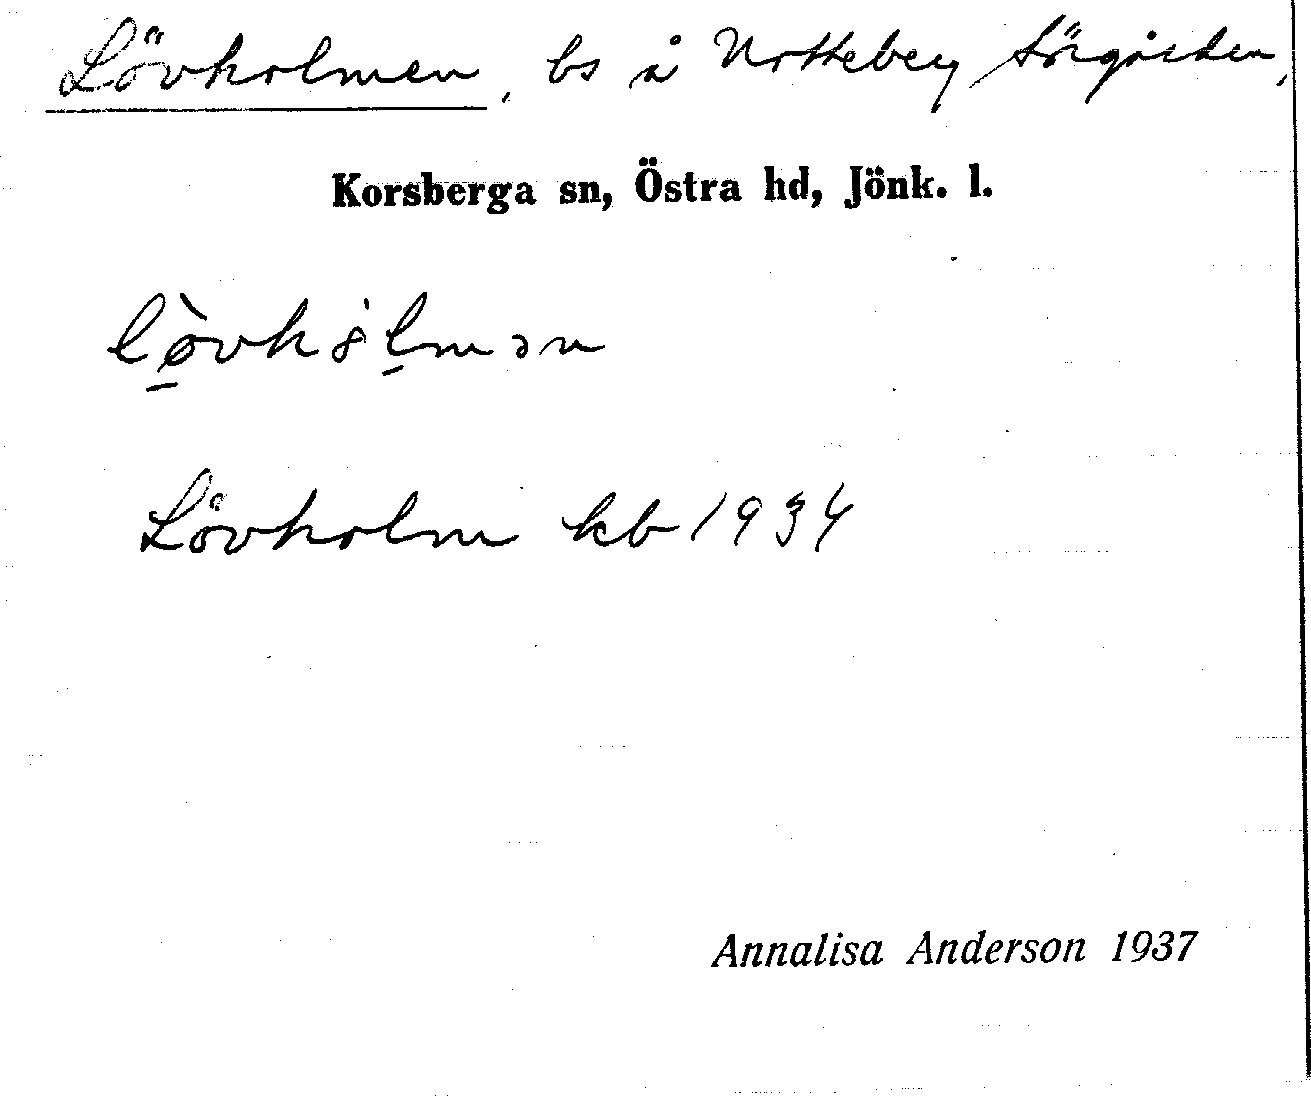 Lövholmen, bs å Notteberg Sörgården,
Korsberga sn, Östra hd, Jönk. l.
Lövholm kb 1934
Annalisa Anderson 1937